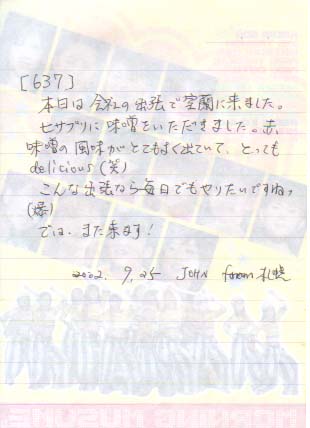 [637]
本日は会社の出張で室蘭に来ました。
ヒサブリに味噌をいただきました。赤
味噌の風味がとてもよく出ていて、とっても
delicious(笑)
こんな出張なら毎日でもやりたいですねっ
(爆)
では、また来ます!
2002. 9,25 JOHN from 札幌
MORNING MUSUME.